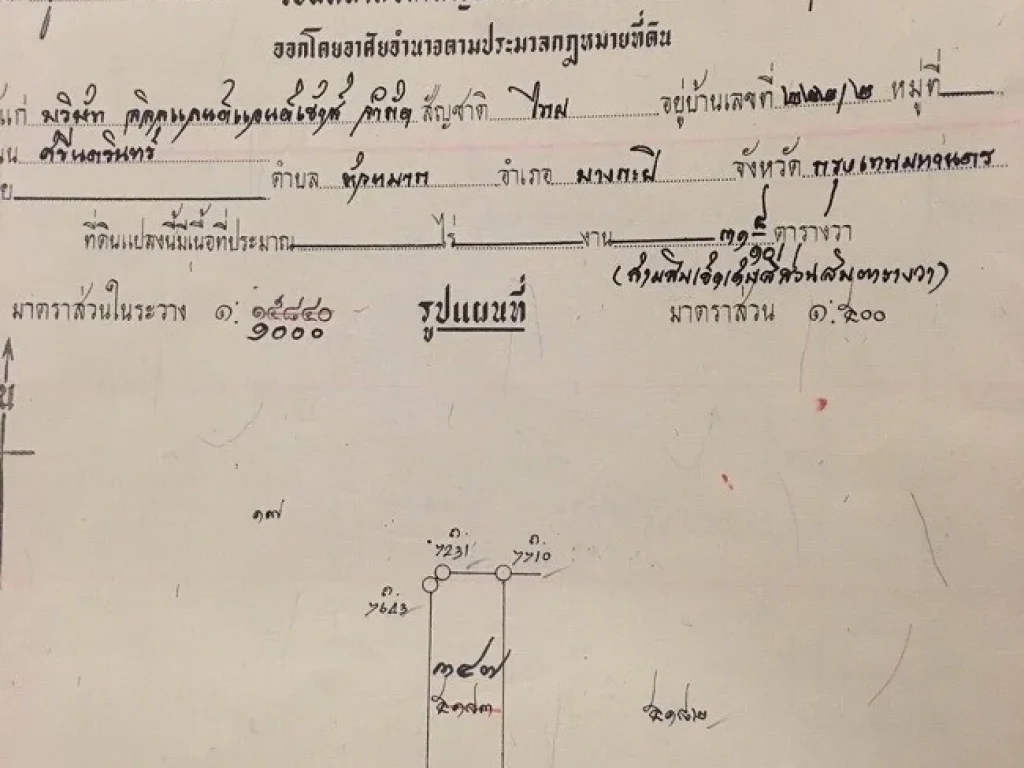 ออกโดยอาศัยอำนาจตามประมวลกฎหมายที่ดิน
แก่ บริษัท แลนด์แอนด์เฮ้าส์ จำกัด สัญชาติ ไทย อยู่บ้านเลขที่ ๒๒๒/๒ หมู่ที่
ถนน ศรีนครินทร์
ตำบล หัวหมาก อำเภอ บางกะปิ จังหวัด กรุงเทพมหานคร
ที่ดินแปลงนี้มีเนื้อที่ประมาณ ไร่ งาน ตารางวา
มาตราส่วนในระวาง ๑: ๑๔๘๔๐ รูปแผนที่ มาตราส่วน ๑:๕๐๐
๑๐๐๐
น
๑๗
ถ. ถ.
7231 7710
ถ.
7643
๓๔๗
๕๑๘๓ ๕๑๘๒